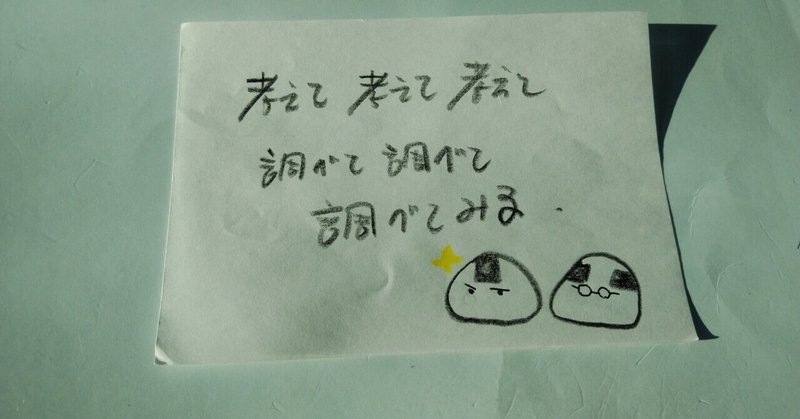 考えて 考えて 考えて
調べて 調べて
調べてみる.